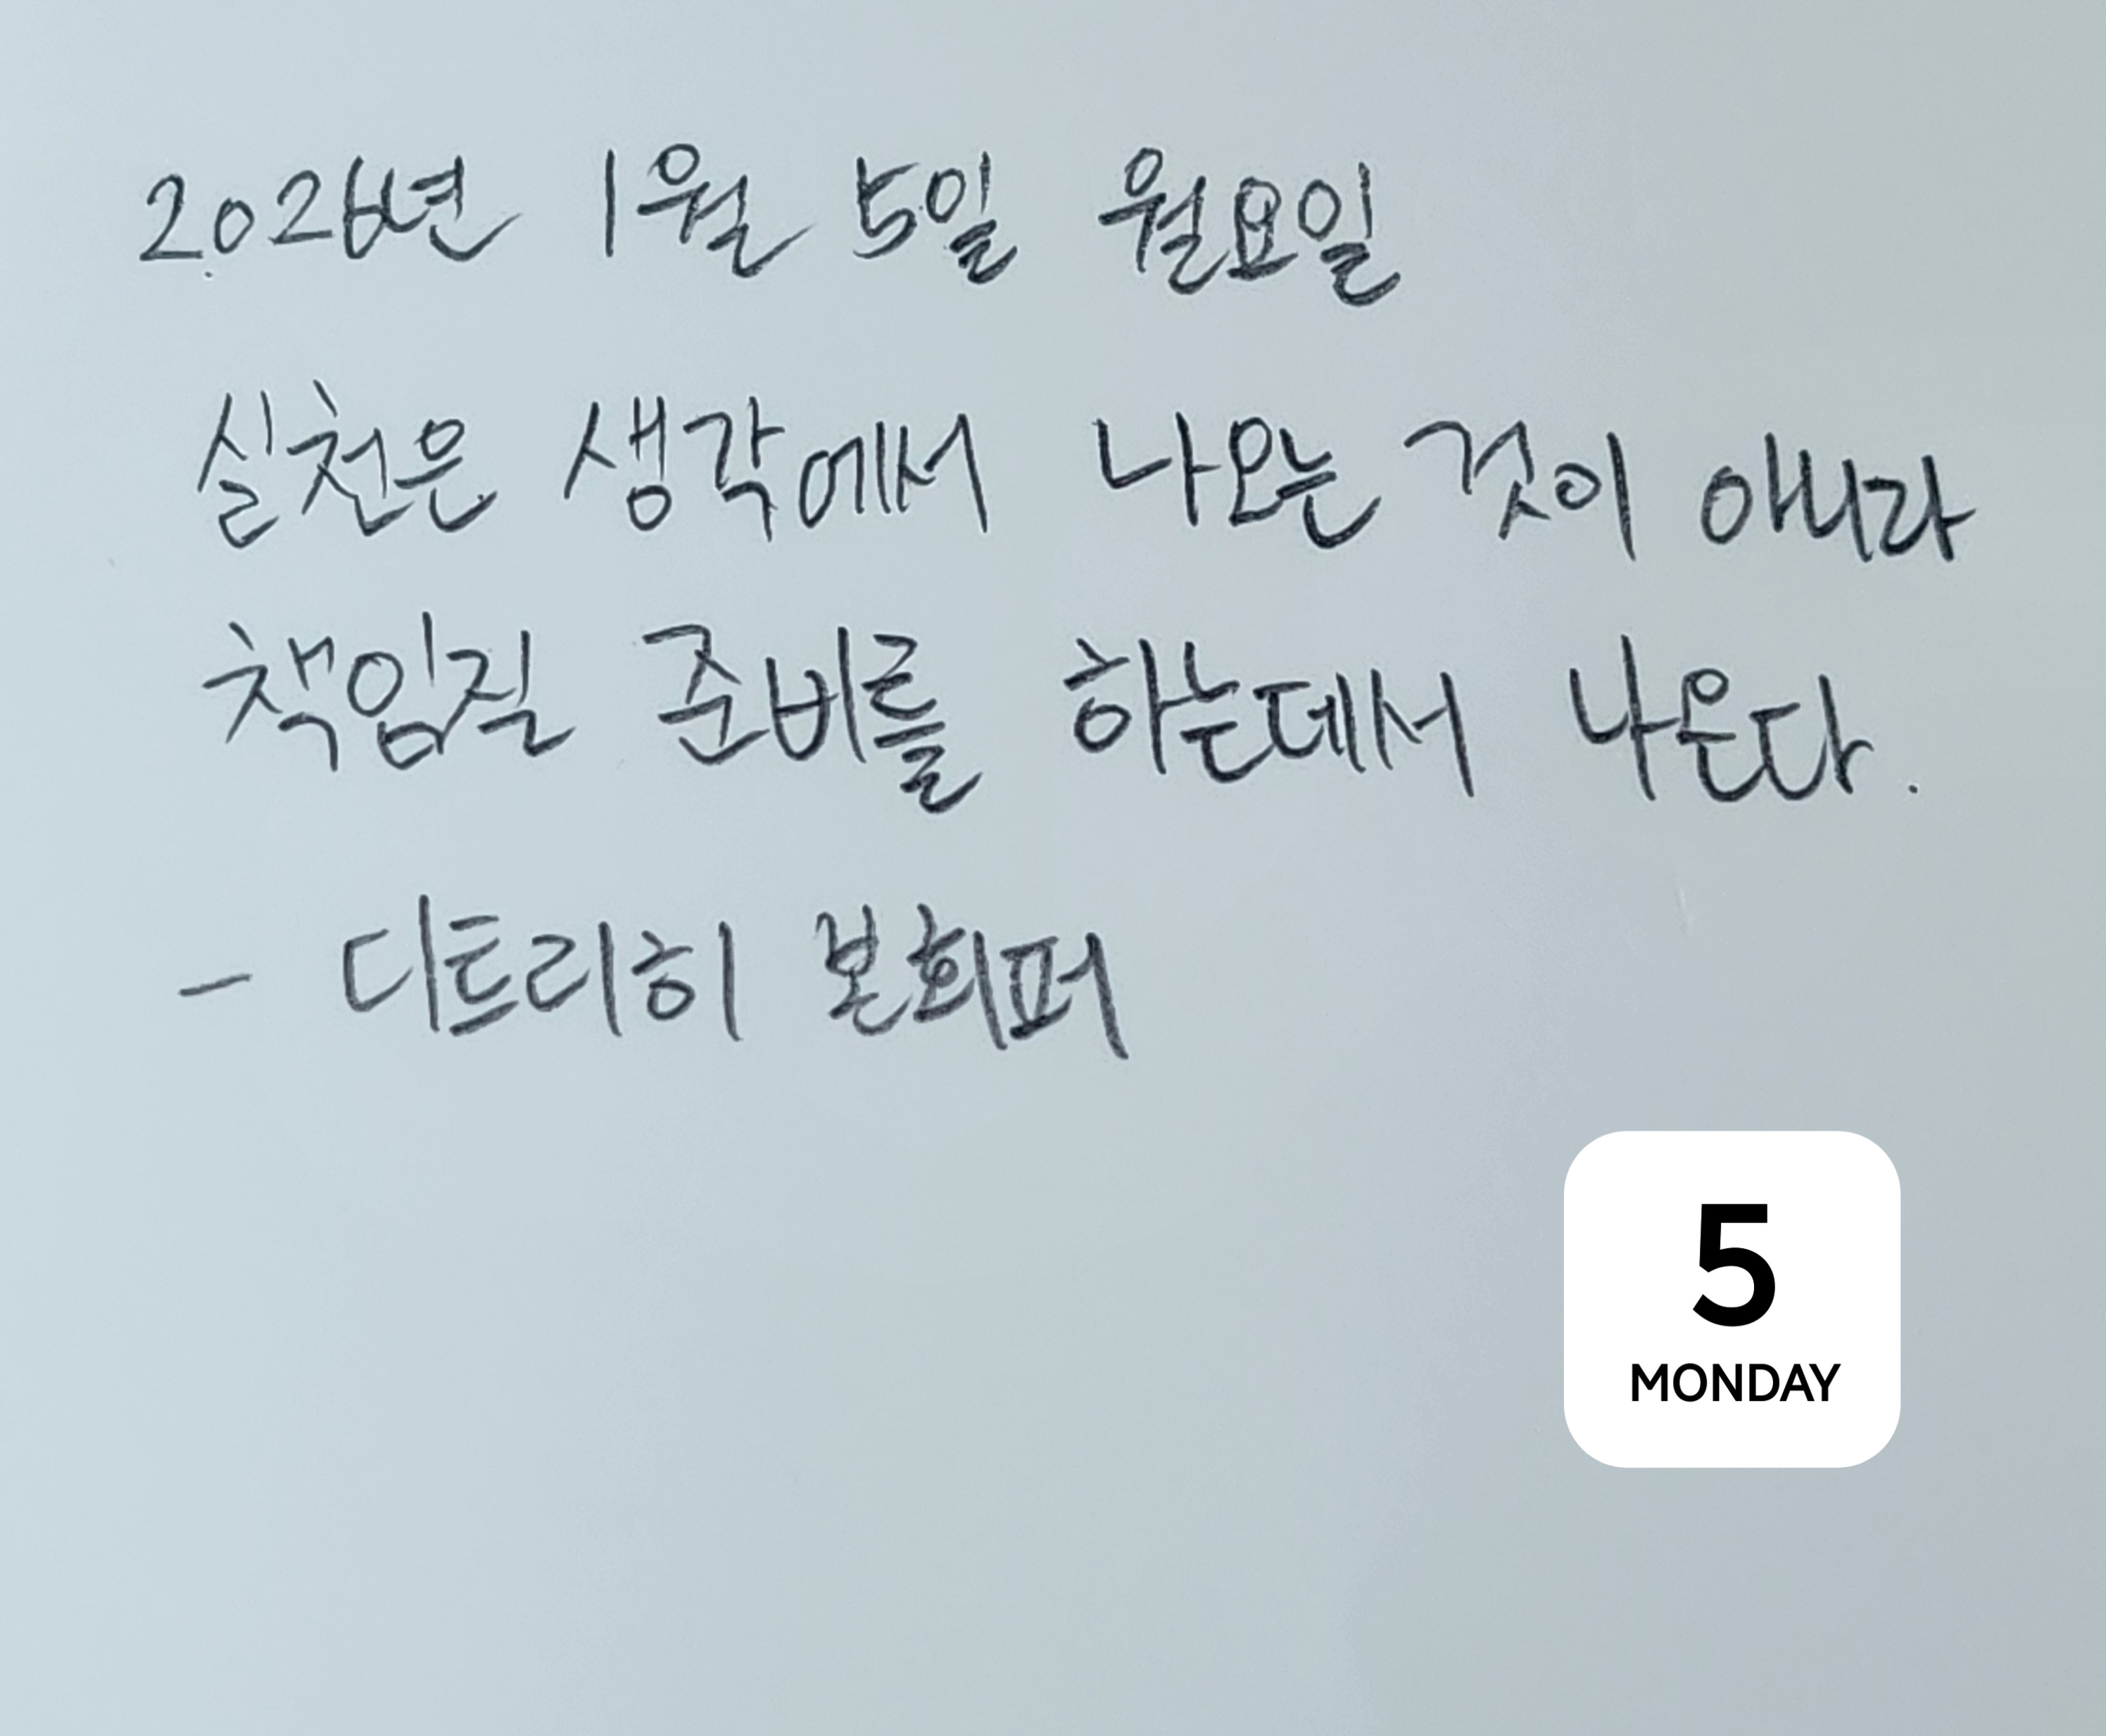 2026년 1월 5일 월요일
실천은 생각에서 나오는 것이 아니라
책임질 준비를 하는데서 나온다.
- 디트리히 본회퍼
5
MONDAY